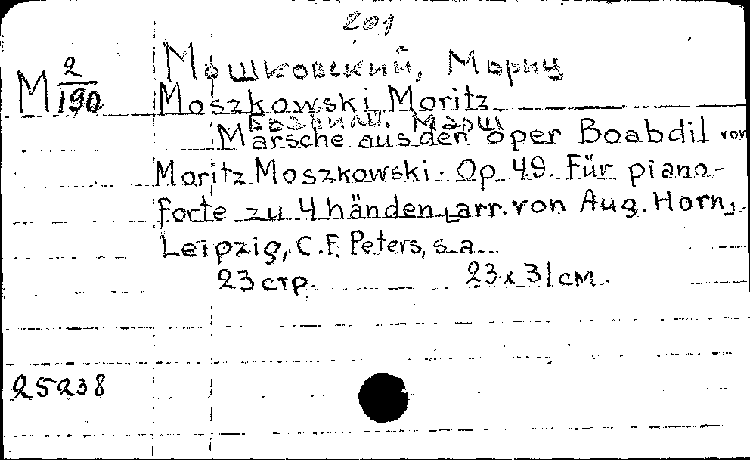 201
М 2/190
Мошковский, Мориц
Moszkowski Moritz
Боабдил. Марш
Märsche aus den oper Boabdil von
Moritz Moszkowski. Op. 49. Für piano-
forte zu 4 händen, arr. von Aug. Horn,
Leipzig, C. F. Peters, s. a.
23 стр. 23 x 31 см.
25238